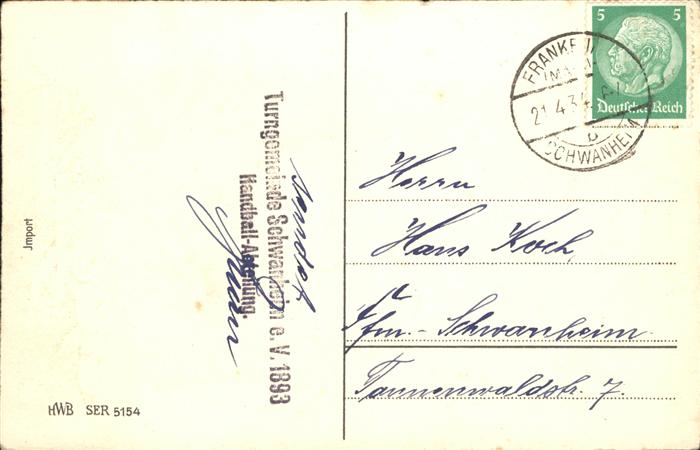 5 5
Deutsches Reich
FRANKFU
(MAIN)
21.4.34
b
SCHWANHEIM
Herrn
Hans Koch,
Ffm.- Schwanheim.
Tannenwaldstr. 7.
sendet
Turngemeinde Schwanheim e. V. 1893
Handball-Abteilung.
Jmport
HWB SER 5154